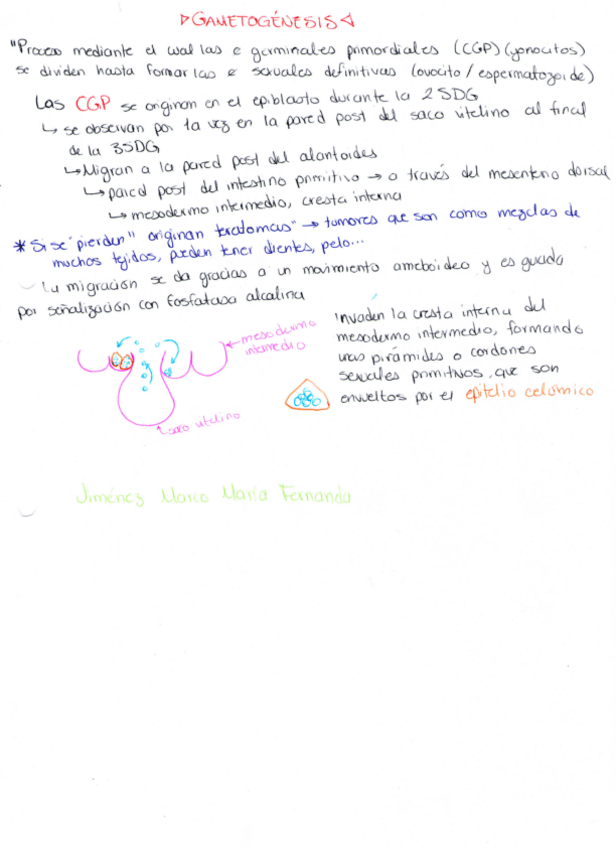 ▷GAMETOGÉNESIS◁
"Proceso mediante el cual las ¢ germinales primordiales (CGP) (gonocitos)
se dividen hasta formar las ¢ sexuales definitivas (ovocito / espermatozoide)
Las CGP se originan en el epiblasto durante la 2SDG
↳ se observan por 1a vez en la pared post del saco vitelino al final
de la 3SDG
↳ Migran a la pared post del alantoides
↳ pared post del intestino primitivo → a través del mesenterio dorsal
↳ mesodermo intermedio, cresta interna
* Si se "pierden" originan teratomas" → tumores que son como mezclas de
muchos tejidos, pueden tener dientes, pelo...
La migración se da gracias a un movimiento ameboideo y es guiada
por señalización con fosfatasa alcalina
mesodermo
intermedio
saco vitelino
Invaden la cresta interna del
mesodermo intermedio, formando
unas pirámides o cordones
sexuales primitivos, que son
envueltos por el epitelio celómico
Jiménez Marco María Fernanda